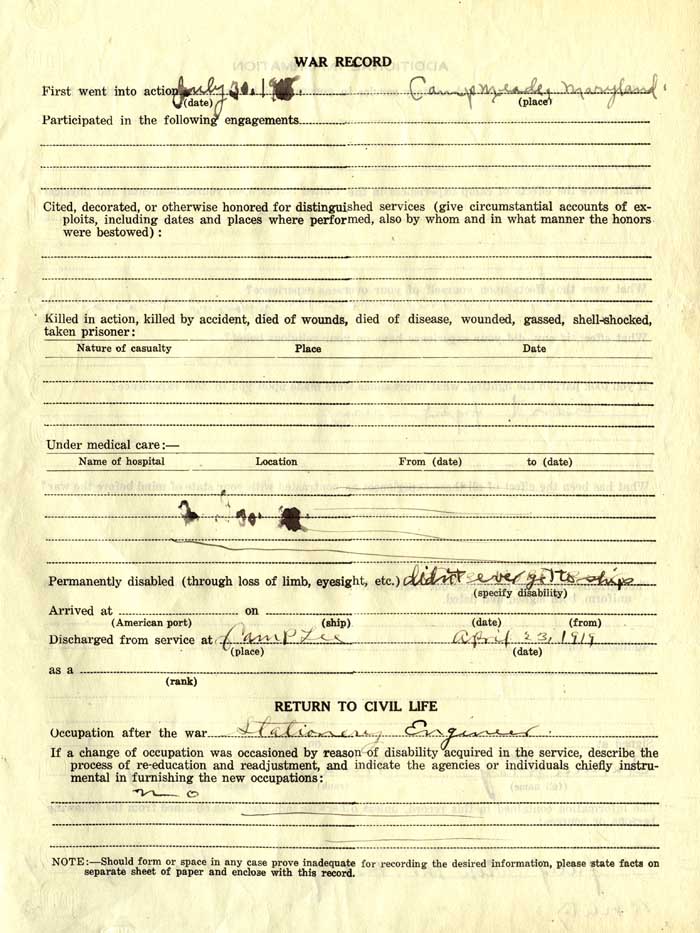 WAR RECORD
First went into action July 30, 191 Camp Meade, Maryland.
(date) (place)
Participated in the following engagements
Cited, decorated, or otherwise honored for distinguished services (give circumstantial accounts of ex-
ploits, including dates and places where performed, also by whom and in what manner the honors
were bestowed) :
Killed in action, killed by accident, died of wounds, died of disease, wounded, gassed, shell-shocked,
taken prisoner:
Nature of casualty Place Date
Under medical care:—
Name of hospital Location From (date) to (date)
30.
Permanently disabled (through loss of limb, eyesight, etc.) didn't ever get to ships
(specify disability)
Arrived at on
(American port) (ship) (date) (from)
Discharged from service at Camp Lee April 23, 1919
(place) (date)
as a
(rank)
RETURN TO CIVIL LIFE
Occupation after the war Stationery Engineer.
If a change of occupation was occasioned by reason of disability acquired in the service, describe the
process of re-education and readjustment, and indicate the agencies or individuals chiefly instru-
mental in furnishing the new occupations:
no
NOTE:—Should form or space in any case prove inadequate for recording the desired information, please state facts on
separate sheet of paper and enclose with this record.